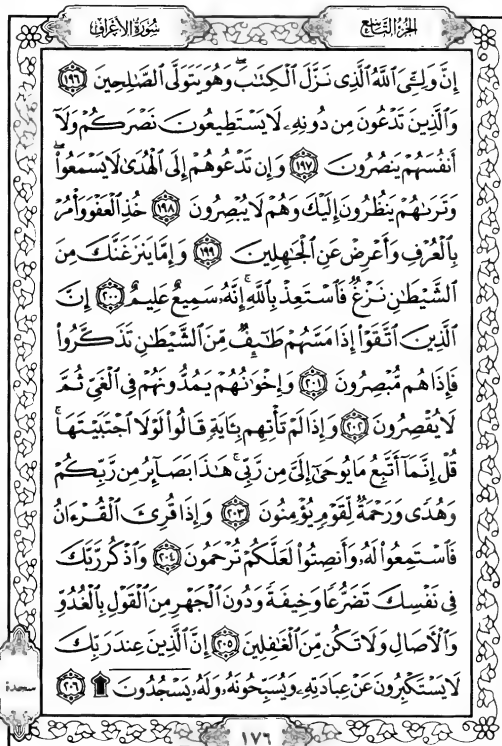 الجزء التاسع
سورة الأعراف
إِنَّ وَلِـِّۧيَ ٱللَّهُ ٱلَّذِي نَزَّلَ ٱلْكِتَٰبَ ۖ وَهُوَ يَتَوَلَّى ٱلصَّٰلِحِينَ ١٩٦
وَٱلَّذِينَ تَدْعُونَ مِن دُونِهِۦ لَا يَسْتَطِيعُونَ نَصْرَكُمْ وَلَآ
أَنفُسَهُمْ يَنصُرُونَ ١٩٧ وَإِن تَدْعُوهُمْ إِلَى ٱلْهُدَىٰ لَا يَسْمَعُوا۟ ۖ
وَتَرَىٰهُمْ يَنظُرُونَ إِلَيْكَ وَهُمْ لَا يُبْصِرُونَ ١٩٨ خُذِ ٱلْعَفْوَ وَأْمُرْ
بِٱلْعُرْفِ وَأَعْرِضْ عَنِ ٱلْجَٰهِلِينَ ١٩٩ وَإِمَّا يَنزَغَنَّكَ مِنَ
ٱلشَّيْطَٰنِ نَزْغٌ فَٱسْتَعِذْ بِٱللَّهِ ۚ إِنَّهُۥ سَمِيعٌ عَلِيمٌ ٢٠٠ إِنَّ
ٱلَّذِينَ ٱتَّقَوْا۟ إِذَا مَسَّهُمْ طَٰٓئِفٌ مِّنَ ٱلشَّيْطَٰنِ تَذَكَّرُوا۟
فَإِذَا هُم مُّبْصِرُونَ ٢٠١ وَإِخْوَٰنُهُمْ يَمُدُّونَهُمْ فِي ٱلْغَيِّ ثُمَّ
لَا يُقْصِرُونَ ٢٠٢ وَإِذَا لَمْ تَأْتِهِم بِـَٔايَةٍ قَالُوا۟ لَوْلَا ٱجْتَبَيْتَهَا ۚ
قُلْ إِنَّمَآ أَتَّبِعُ مَا يُوحَىٰٓ إِلَيَّ مِن رَّبِّي ۚ هَٰذَا بَصَآئِرُ مِن رَّبِّكُمْ
وَهُدًى وَرَحْمَةٌ لِّقَوْمٍ يُؤْمِنُونَ ٢٠٣ وَإِذَا قُرِئَ ٱلْقُرْءَانُ
فَٱسْتَمِعُوا۟ لَهُۥ وَأَنصِتُوا۟ لَعَلَّكُمْ تُرْحَمُونَ ٢٠٤ وَٱذْكُر رَّبَّكَ
فِي نَفْسِكَ تَضَرُّعًا وَخِيفَةً وَدُونَ ٱلْجَهْرِ مِنَ ٱلْقَوْلِ بِٱلْغُدُوِّ
وَٱلْءَاصَالِ وَلَا تَكُن مِّنَ ٱلْغَٰفِلِينَ ٢٠٥ إِنَّ ٱلَّذِينَ عِندَ رَبِّكَ
لَا يَسْتَكْبِرُونَ عَنْ عِبَادَتِهِۦ وَيُسَبِّحُونَهُۥ وَلَهُۥ يَسْجُدُونَ ۩ ٢٠٦
سجدة
١٧٦